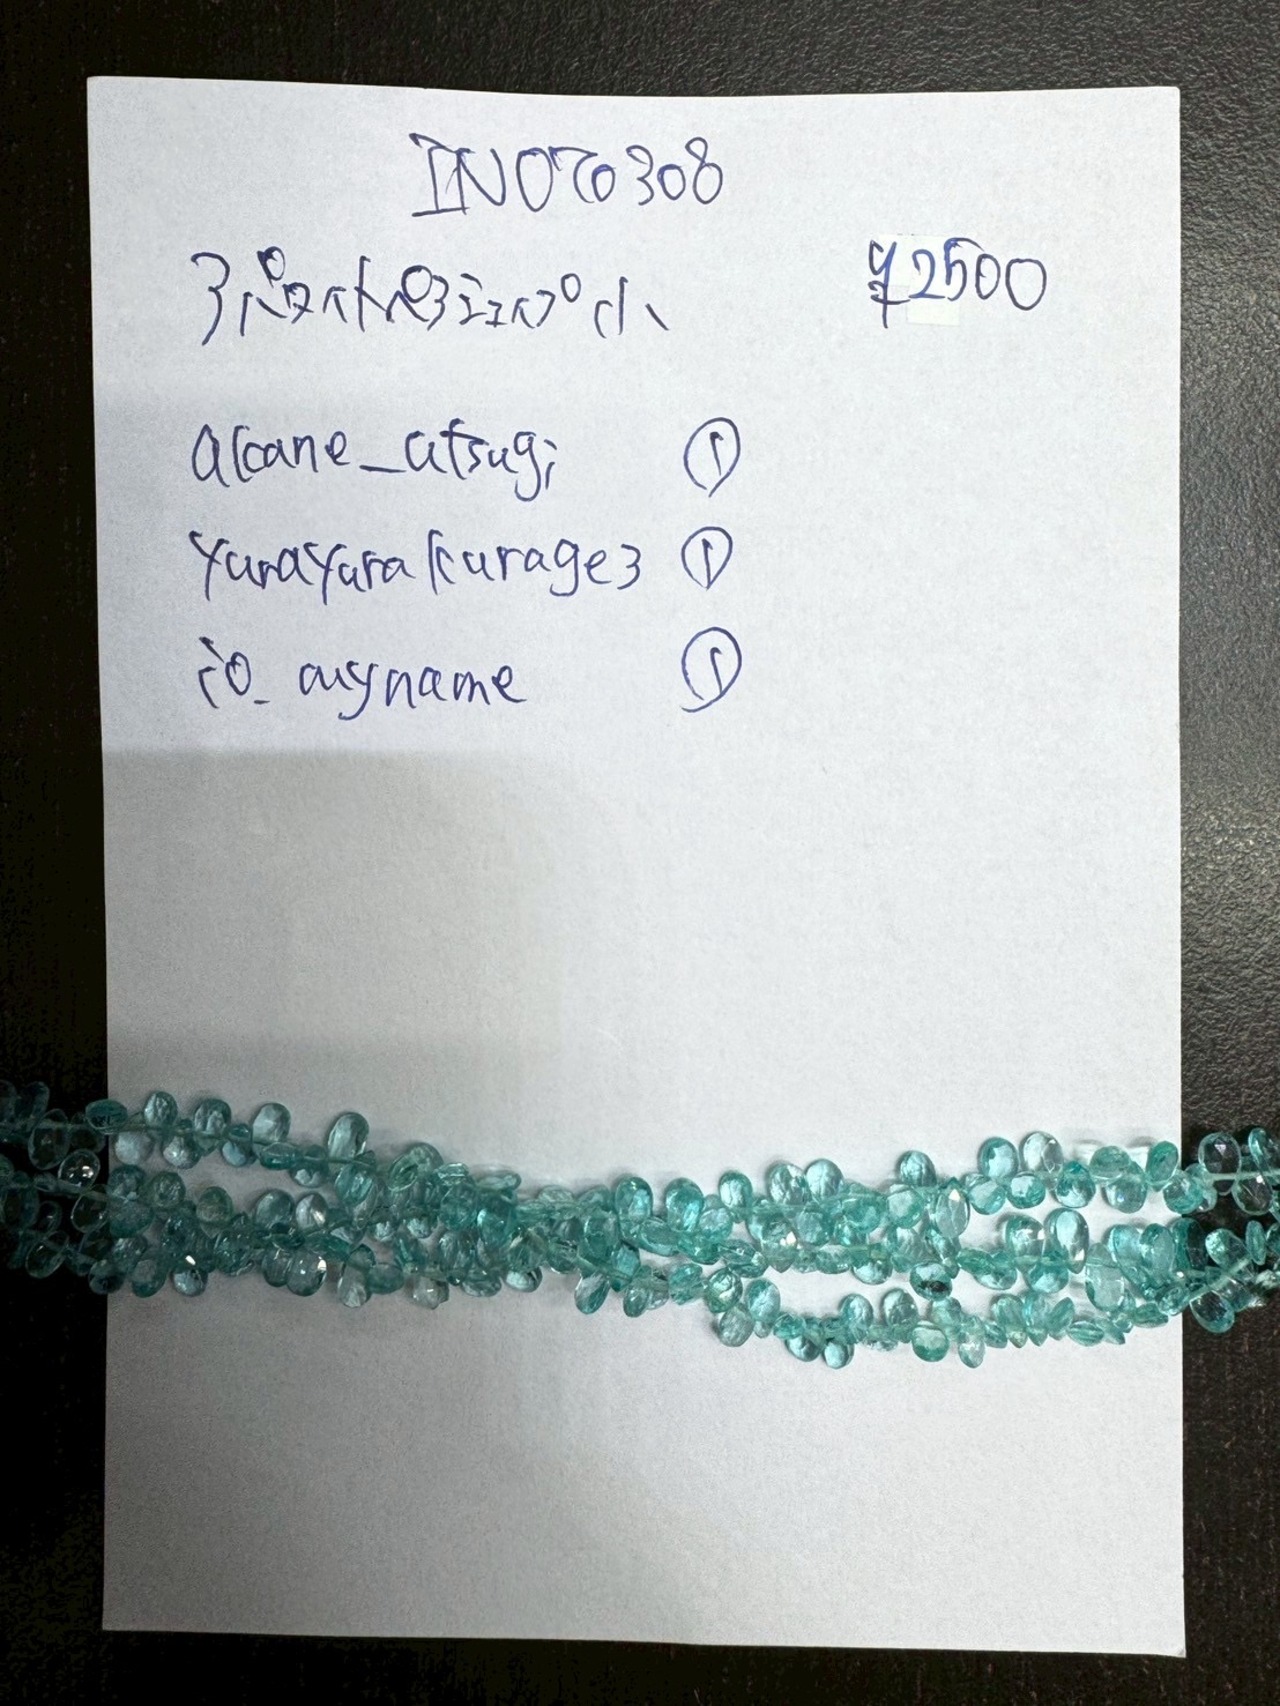 INO70308
アパタイト ¥2500
akane_atsugi ①
yurayurakurage3 ①
io_myname ①